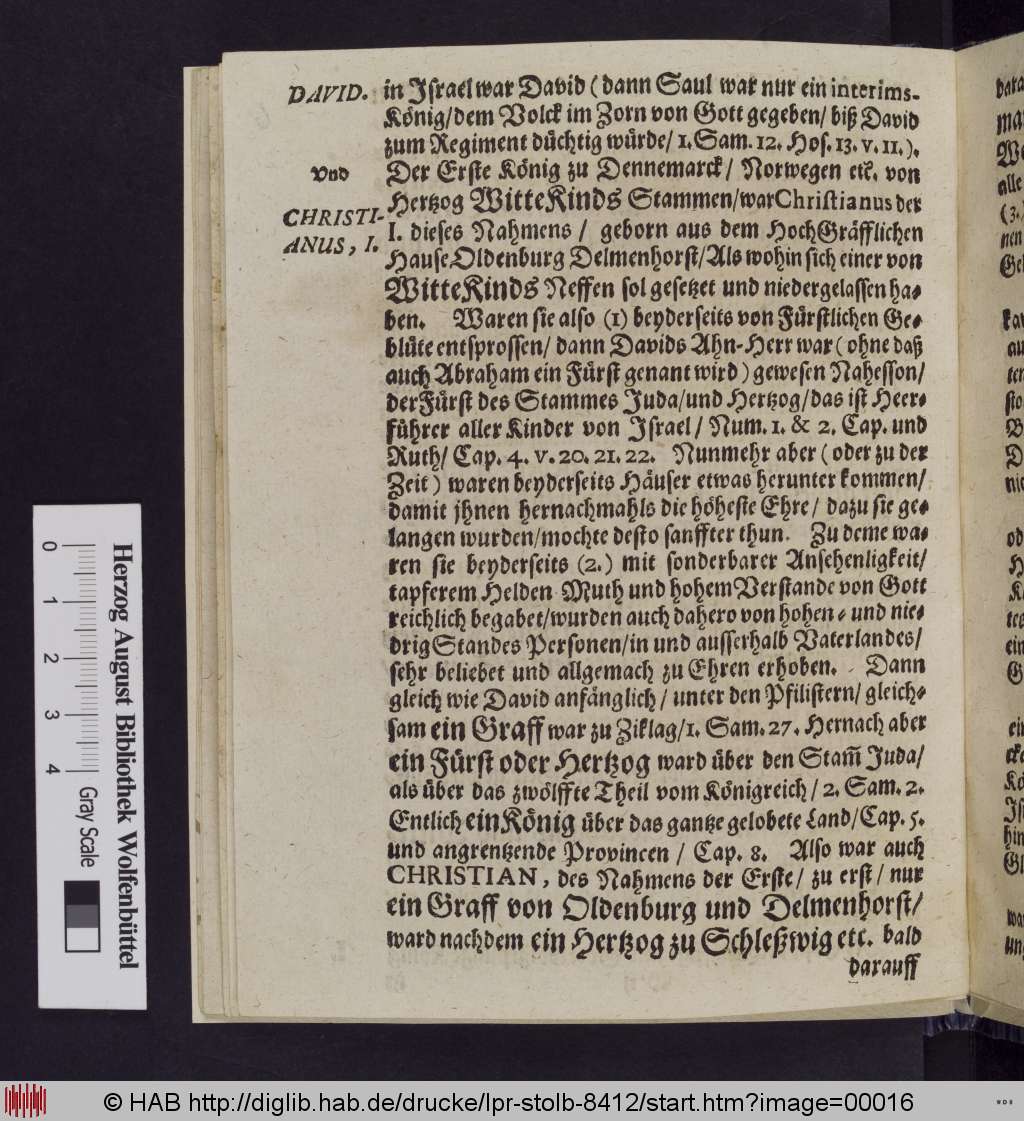 DAVID.
in Israel war David (dann Saul war nur ein interims-
König/dem Volck im Zorn von Gott gegeben/ biß David
zum Regiment düchtig würde/ 1. Sam. 12. Hos. 13. v. 11.).
vnd
Der Erste König zu Dennemarck/ Norwegen etc. von
Hertzog WitteKinds Stammen/war Christianus der
CHRISTI-
I. dieses Nahmens / geborn aus dem HochGräfflichen
ANUS, I.
Hause Oldenburg Delmenhorst/Als wohin sich einer von
WitteKinds Neffen sol gesetzet und niedergelassen ha-
ben. Waren sie also (1) beyderseits von Fürstlichen Ge-
blüte entsprossen/ dann Davids Ahn-Herr war (ohne daß
auch Abraham ein Fürst genant wird) gewesen Nahesson/
der Fürst des Stammes Juda/und Hertzog/das ist Heer-
führer aller Kinder von Israel/ Num. 1. & 2. Cap. und
Ruth/ Cap. 4. v. 20. 21. 22. Nunmehr aber (oder zu der
Zeit) waren beyderseits Häuser etwas herunter kommen/
damit jhnen hernachmahls die höheste Ehre/ dazu sie ge-
langen wurden/mochte desto sanffter thun. Zu deme wa-
ren sie beyderseits (2.) mit sonderbarer Ansehenligkeit/
tapferem Helden Muth und hohem Verstande von Gott
reichlich begabet/wurden auch dahero von hohen- und nie-
drig Standes Personen/in und ausserhalb Vaterlandes/
sehr beliebet und allgemach zu Ehren erhoben. Dann
gleich wie David anfänglich/ unter den Pfilistern/ gleich-
sam ein Graff war zu Ziklag/1. Sam. 27. Hernach aber
ein Fürst oder Hertzog ward über den Stam̃ Juda/
als über das zwölffte Theil vom Königreich/ 2. Sam. 2.
Entlich ein König über das gantze gelobete Land/Cap. 5.
und angrentzende Provincen / Cap. 8. Also war auch
CHRISTIAN, des Nahmens der Erste/ zu erst/ nur
ein Graff von Oldenburg und Delmenhorst/
ward nachdem ein Hertzog zu Schleßwig etc. bald
darauff
Herzog August Bibliothek Wolfenbüttel
0 1 2 3 4 Gray Scale
© HAB http://diglib.hab.de/drucke/lpr-stolb-8412/start.htm?image=00016